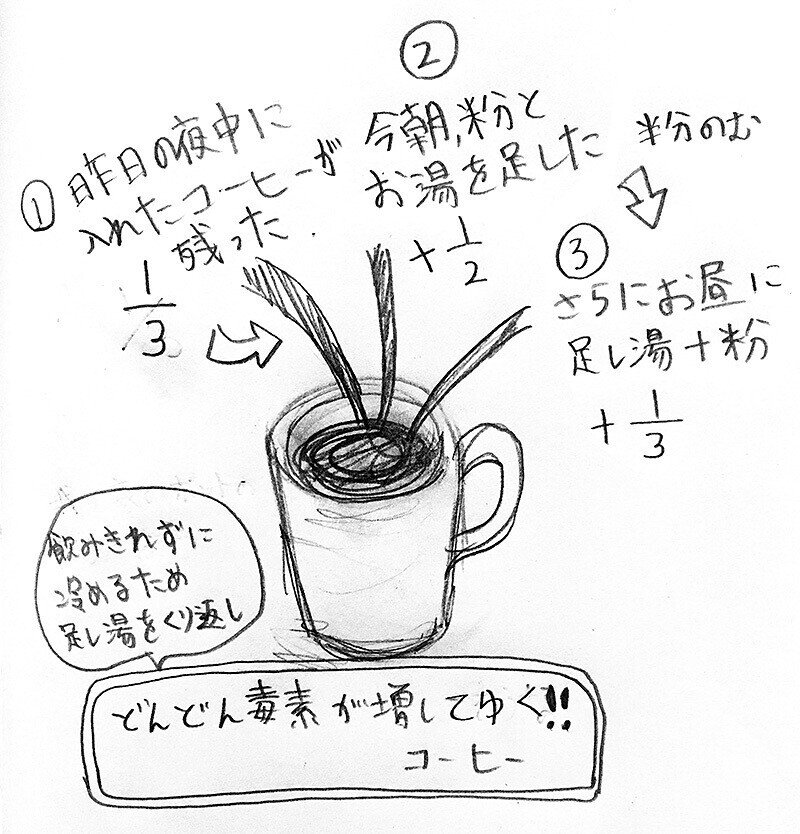 ①
昨日の夜中に
入れたコーヒーが
残った.
1/3
②
今朝、粉と
お湯を足した
+1/2
半分のむ
③
さらにお昼に
足し湯+粉
+1/3
飲みきれずに
冷めるため
足し湯をくり返し
どんどん毒素が増してゆく!!
コーヒー